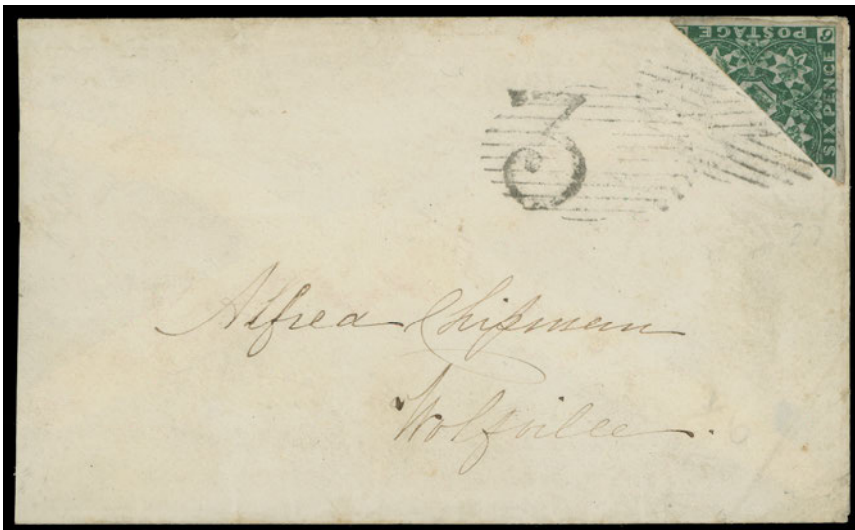 POSTAGE
SIX PENCE
6
3
Alfred Chipman
Wolfville.